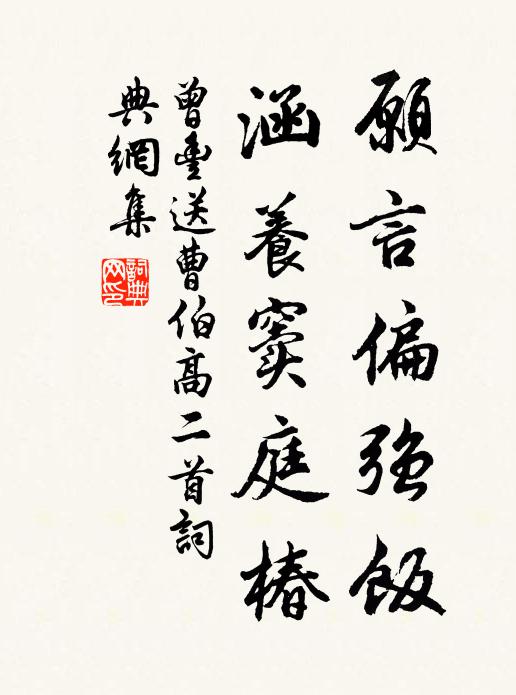 願言偏強飯
涵養竇庭椿
曾豐送曹伯高二首詞
典網集
詞典
网印